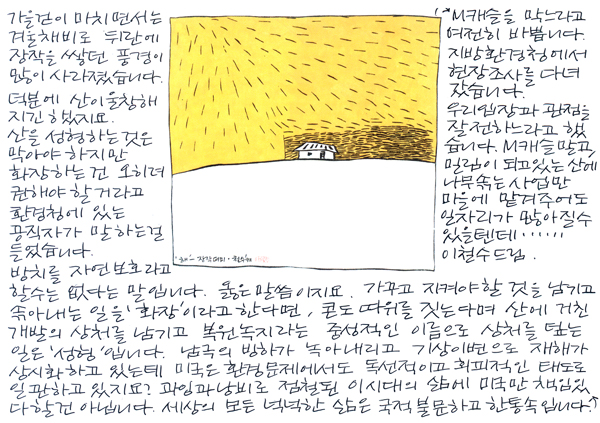 가을걷이 마치면서는
겨울채비로 뒤란에
장작을 쌓던 풍경이
많이 사라졌습니다.
덕분에 산이 울창해
지긴 했지요.
산을 성형하는 것은
막아야 하지만
화장하는 건 오히려
권해야 할 거라고
환경청에 있는
공직자가 말하는걸
들었습니다.
방치를 자연보호라고
할수는 없다는 말입니다. 옳은 말씀이지요. 가꾸고 지켜야할 것을 남기고
솎아내는 일을 '화장'이라고 한다면, 콘도 따위를 짓는다며 산에 거친
개발의 상처를 남기고 복원녹지라는 중성적인 이름으로 상처를 덮는
일은 '성형'입니다. 남극의 빙하가 녹아내리고 기상이변으로 재해가
상시화하고 있는데 미국은 환경문제에서도 독선적이고 회피적인 태도로
일관하고 있지요? 과잉과 낭비로 점철된 이시대의 삶에 미국만 책임있
다할건 아닙니다. 세상의 모든 넉넉한 삶은 국적불문하고 한통속입니다.
M캐슬을 막느라고
여전히 바쁩니다.
지방환경청에서
현장조사를 다녀
갔습니다.
우리입장과 관점을
잘 전하느라고 했
습니다. M캐슬말고,
밀림이 되고있는 산에
나무솎는 사업만
마을에 맡겨주어도
일자리가 많아질수
있을텐데······
이철수드림.
장작더미·철수